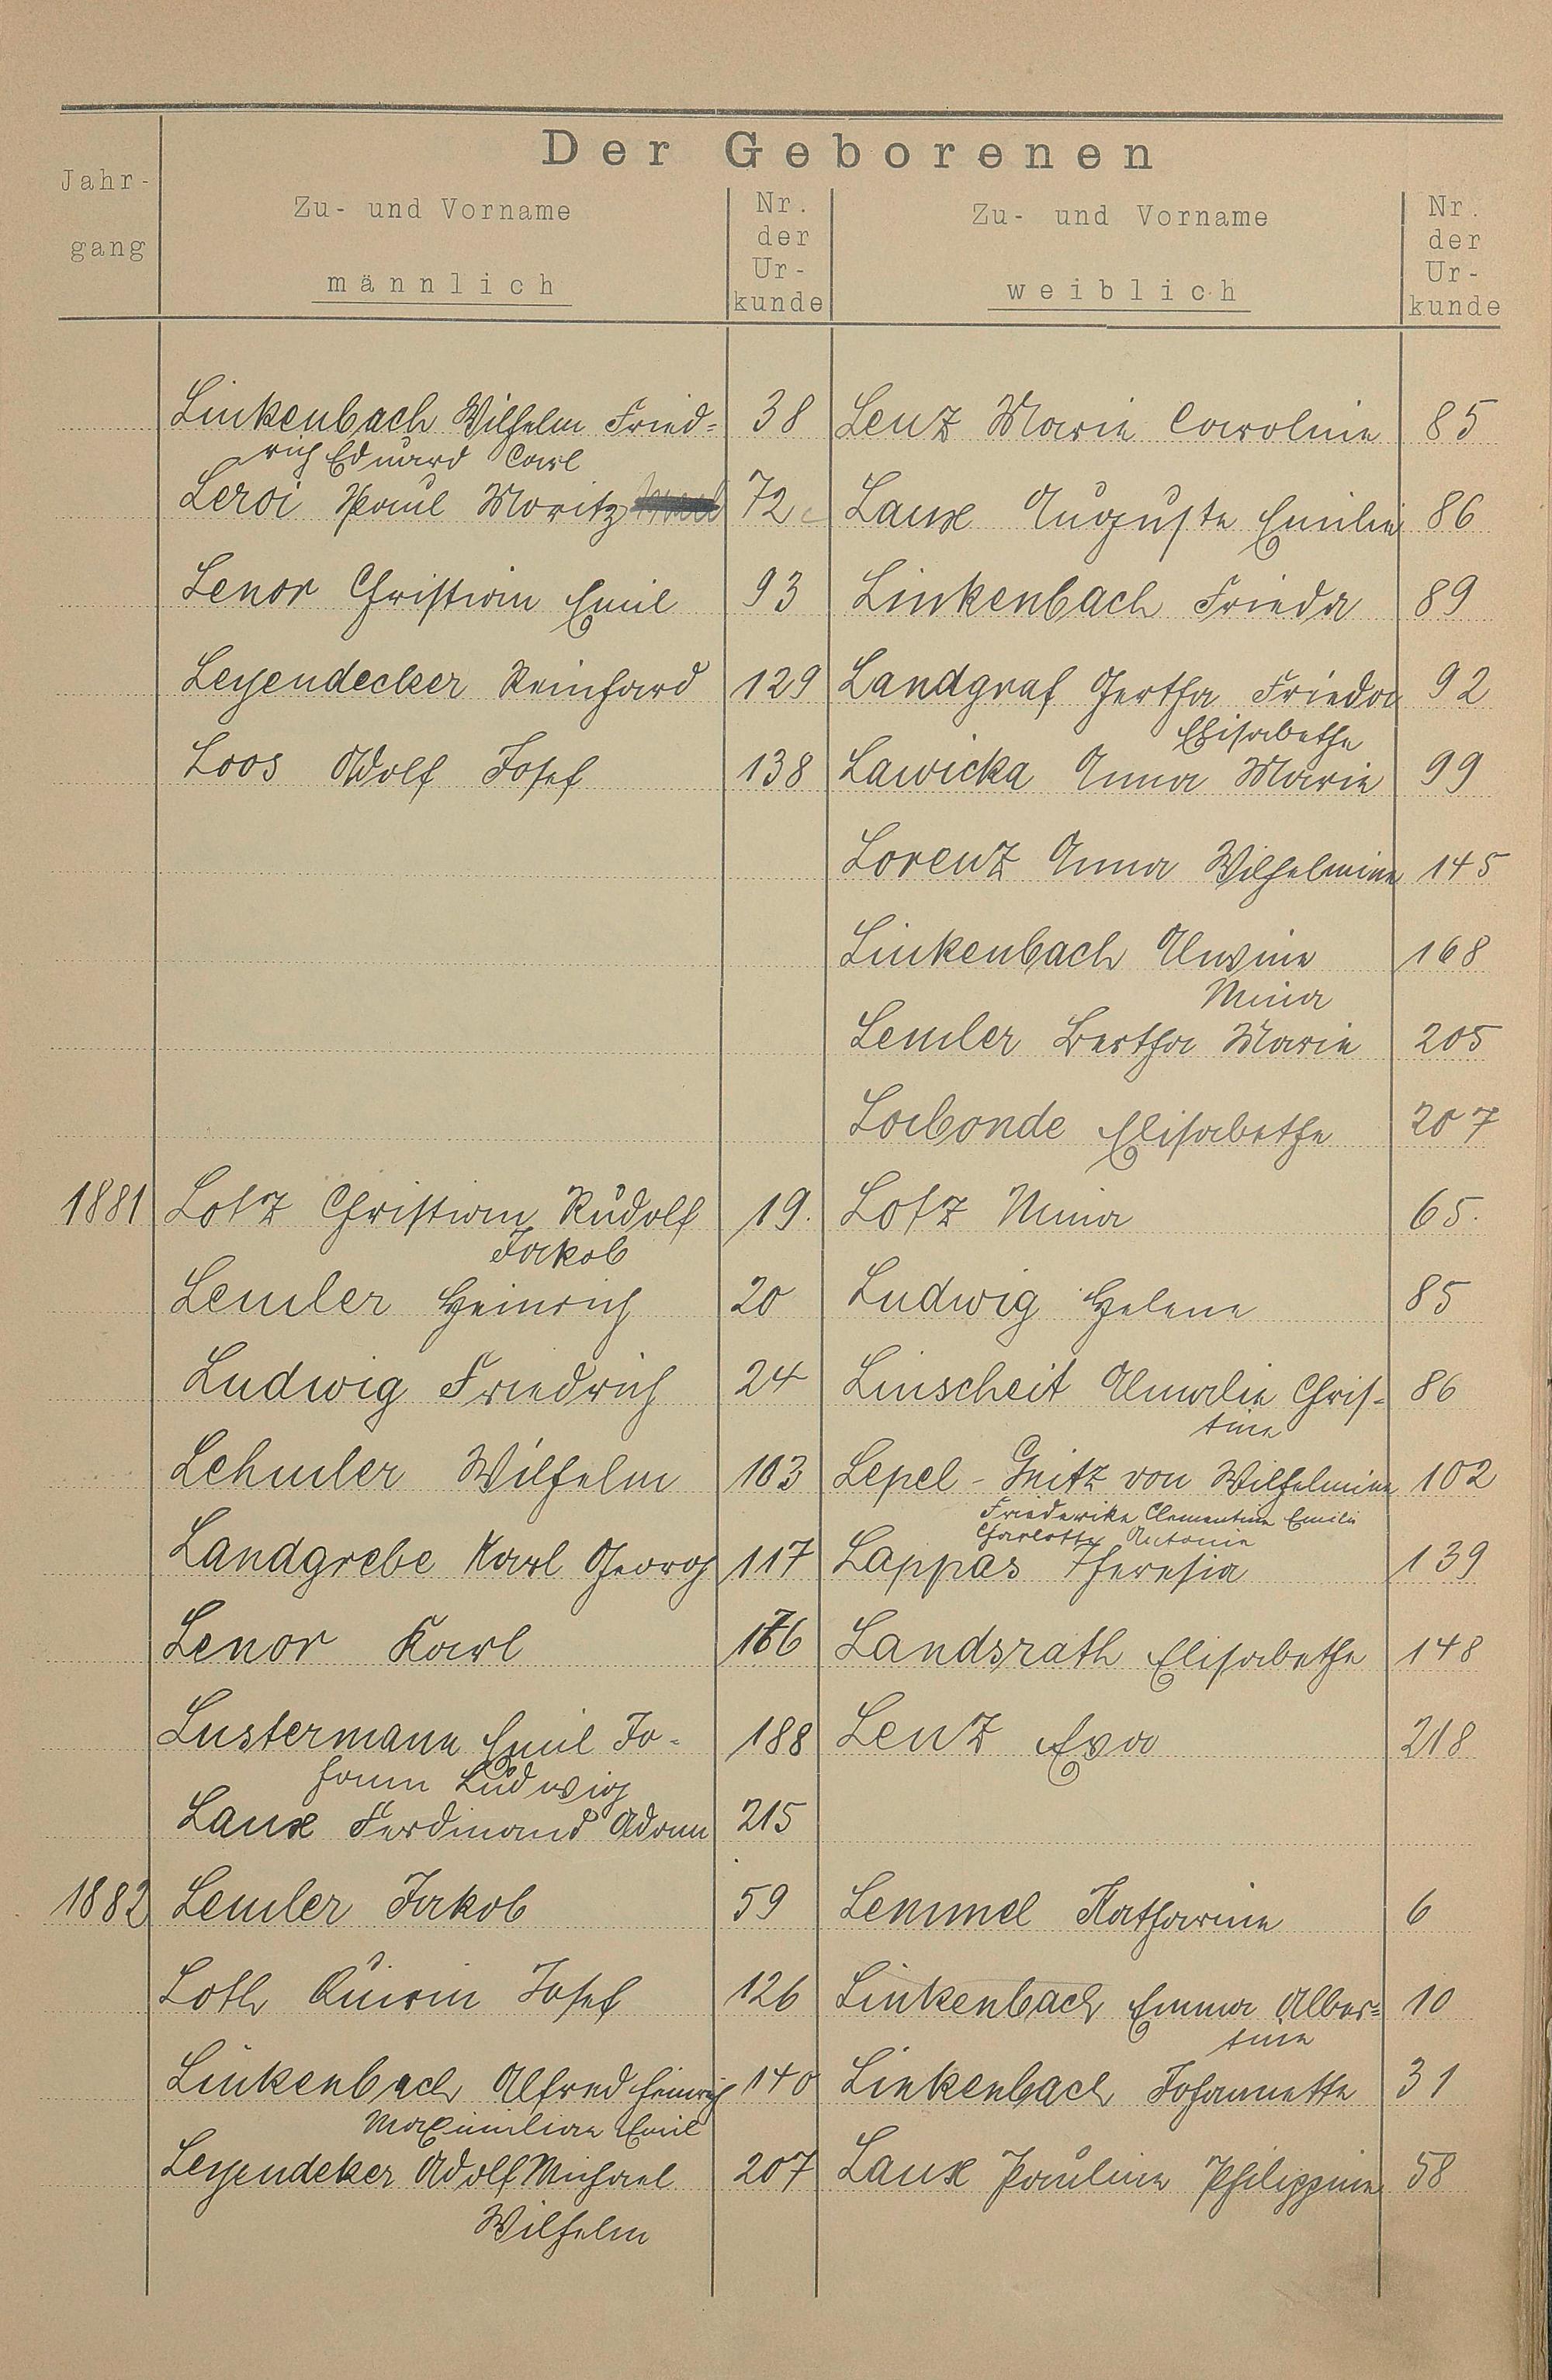 Der Geborenen
Jahr-
gang
Zu- und Vorname
männlich
Nr.
der
Ur-
kunde
Zu- und Vorname
weiblich
Nr.
der
Ur-
kunde
Linkenbach Wilhelm Fried- 38 Lenz Marie Caroline 85
rich Eduard Carl
Leroi Paul Moritz 72 Laux Auguste Emilie 86
Lenor Christian Emil 93 Linkenbach Frieda 89
Leyendecker Reinhard 129 Landgraf Hertha Frieda 92
Elisabethe
Loos Adolf Josef 138 Lawicka Anna Marie 99
Lorenz Anna Wilhelmine 145
Linkenbach Alwine 168
Mina
Lemler Bertha Marie 205
Labonde Elisabethe 207
1881 Lotz Christian Rudolf 19. Lotz Mina 65.
Jakob
Lemler Heinrich 20 Ludwig Helene 85
Ludwig Friedrich 24 Linscheit Amalie Chris- 86
tine
Lehmler Wilhelm 103 Lepel-Gnitz von Wilhelmine 102
Friederike Clementine Emilie
Charlotte Antonie
Landgrebe Karl Georg 117 Lappas Theresia 139
Lenor Karl 176 Landsrath Elisabethe 148
Lustermann Emil Jo- 188 Lenz Eva 218
hann Ludwig
Laux Ferdinand Adam 215
1882 Lemler Jakob 59 Lemmel Katharine 6
Loth Quirin Josef 126 Linkenbach Emma Alber- 10
tine
Linkenbach Alfred Heinrich 140 Linkenbach Johannette 31
Maximilian Emil
Leyendeker Adolf Michael 207 Laux Pauline Philippine 58
Wilhelm